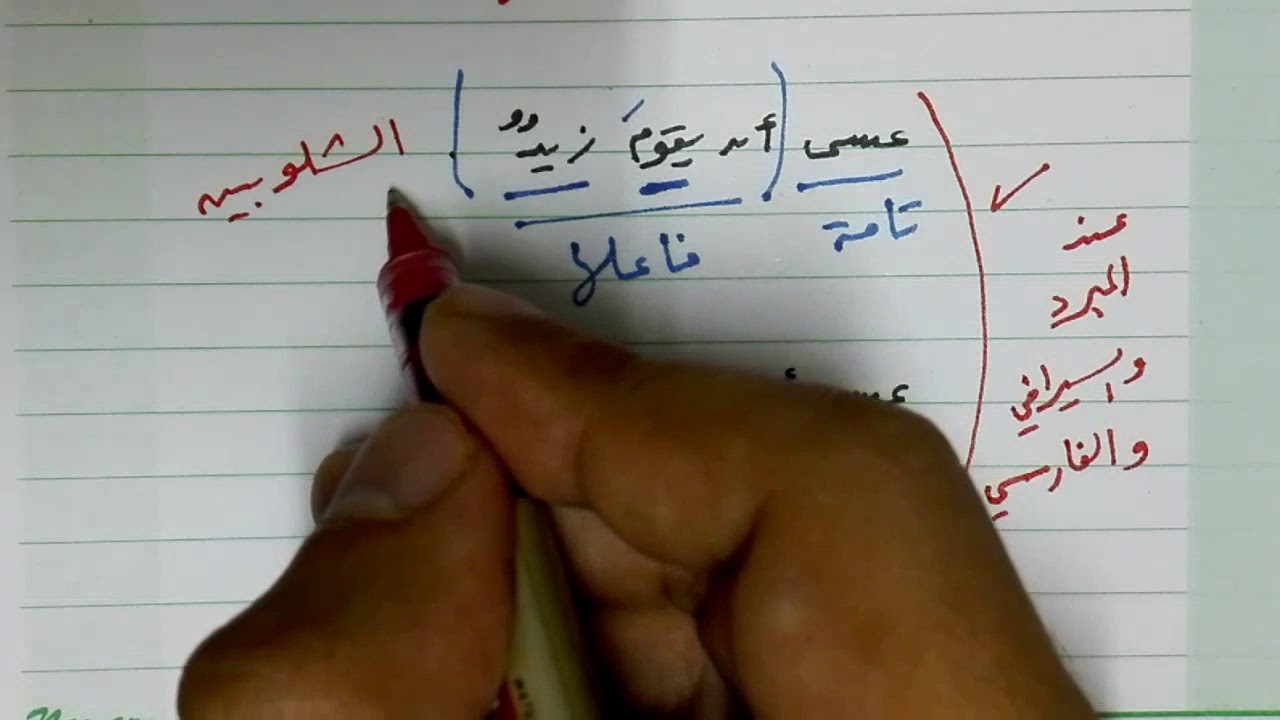 عسى (أن يقومَ زيدٌ) الشلوبين
تامة
فاعلا
عند
المبرد
والسيرافي
والفارسي